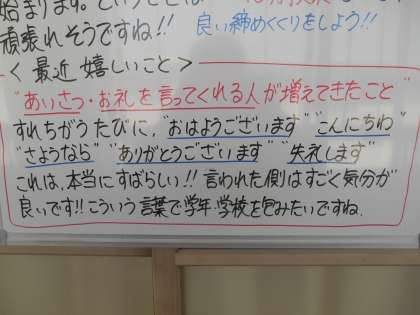 始まります。ということは
頑張れそうですね!! 良い締めくくりをしよう!!
<最近嬉しいこと>
"あいさつ・お礼を言ってくれる人が増えてきたこと"
すれちがうたびに、"おはようございます" "こんにちわ"
"さようなら" "ありがとうございます" "失礼します"
これは、本当にすばらしい!! 言われた側はすごく気分が
良いです!! こういう言葉で学年、学校を包みたいですね。